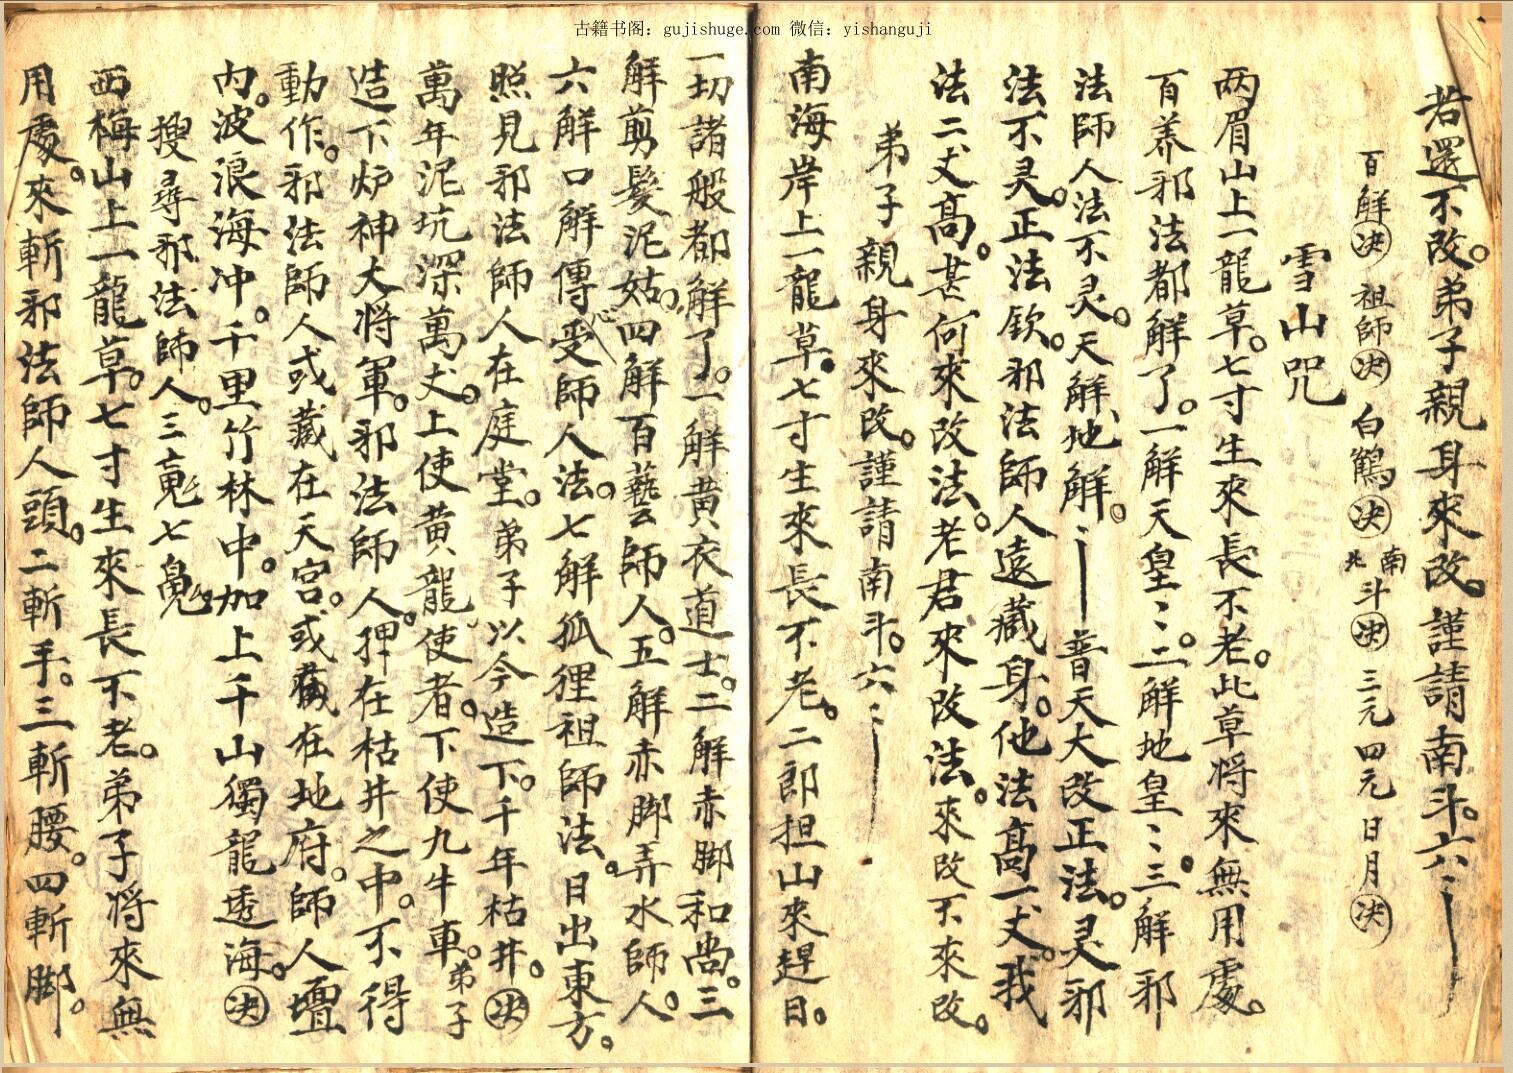 古籍书阁：gujishuge.com 微信：yishanguji
若還不改。弟子親身來改。謹請南斗。六〻
百解決祖師決白鶴決南北斗決三元四元日月決
雪山咒
两眉山上一龍草。七寸生來長不老。此草将來無用處。
百养邪法都解了。一解天皇〻。二解地皇〻。三解邪
法師人法不灵。天解地解。〻普天大改正法。灵邪
法不灵。正法欽。邪法師人遠藏身。他法高一丈。我
法二丈高。甚何來改法。老君來改法。來改不來改。
弟子親身來改。謹請南斗。六〻
南海岸上一龍草。七寸生來長不老。二郎担山來趕日。
一切諸般都解了。一解黄衣道士。二解赤脚和尚。三
解剪髮泥姑。四解百藝師人。五解赤脚弄水師人。
六解口解傳心受師人法。七解狐狸祖師法。日出東方。
照見邪法師人在庭堂。弟子以今造下。千年枯井。決
萬年泥坑深萬丈。上使黄龍使者。下使九牛車。弟子
造下炉神大将軍。邪法師人。押在枯井之中。不得
動作。邪法師人或藏在天宫。或藏在地府。師人壇
内。波浪海冲。千里竹林中。加上千山獨龍透海。決
搜尋邪法師人。三魂七魄。
西梅山上一龍草。七寸生來長不老。弟子将來無
用處。來斬邪法師人頭。二斬手。三斬腰。四斬脚。